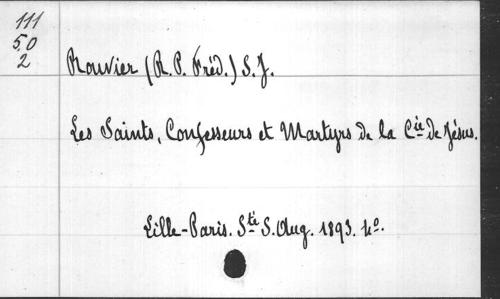 111
50
2
Rouvier (R. P. Fréd.) S. J.
Les Saints, Confesseurs et Martyrs de la Cie de Jésus.
Lille-Paris. Sté S. Aug. 1893. 4o.